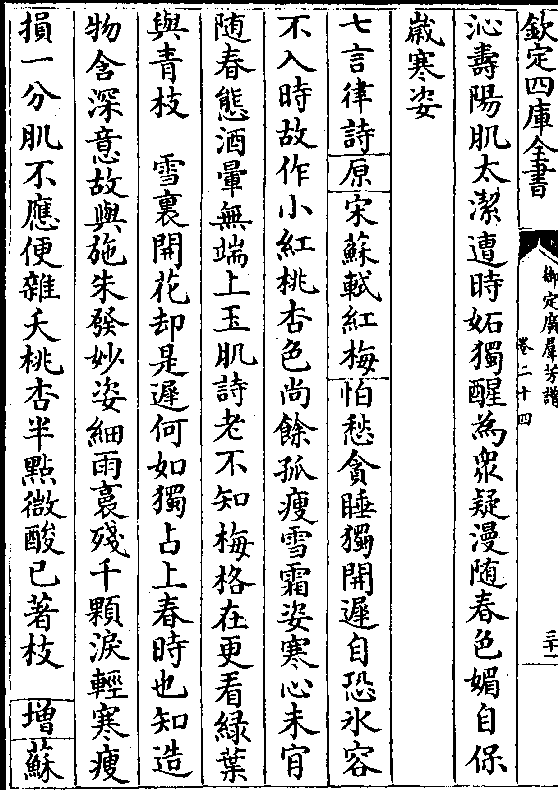 欽定四庫全書
御定廣羣芳譜
卷二十四
三十一
沁壽陽肌太潔遭時妬獨醒為衆疑漫随春色媚自保
嵗寒姿
七言律詩原宋蘇軾紅梅怕愁貪睡獨開遲自恐冰容
不入時故作小紅桃杏色尚餘孤瘦雪霜姿寒心未肎
随春態酒暈無端上玉肌詩老不知梅格在更看緑葉
與青枝　雪裏開花却是遲何如獨占上春時也知造
物含深意故與施朱發妙姿細雨裛殘千顆淚輕寒瘦
損一分肌不應便雜夭桃杏半點微酸已著枝　增蘇